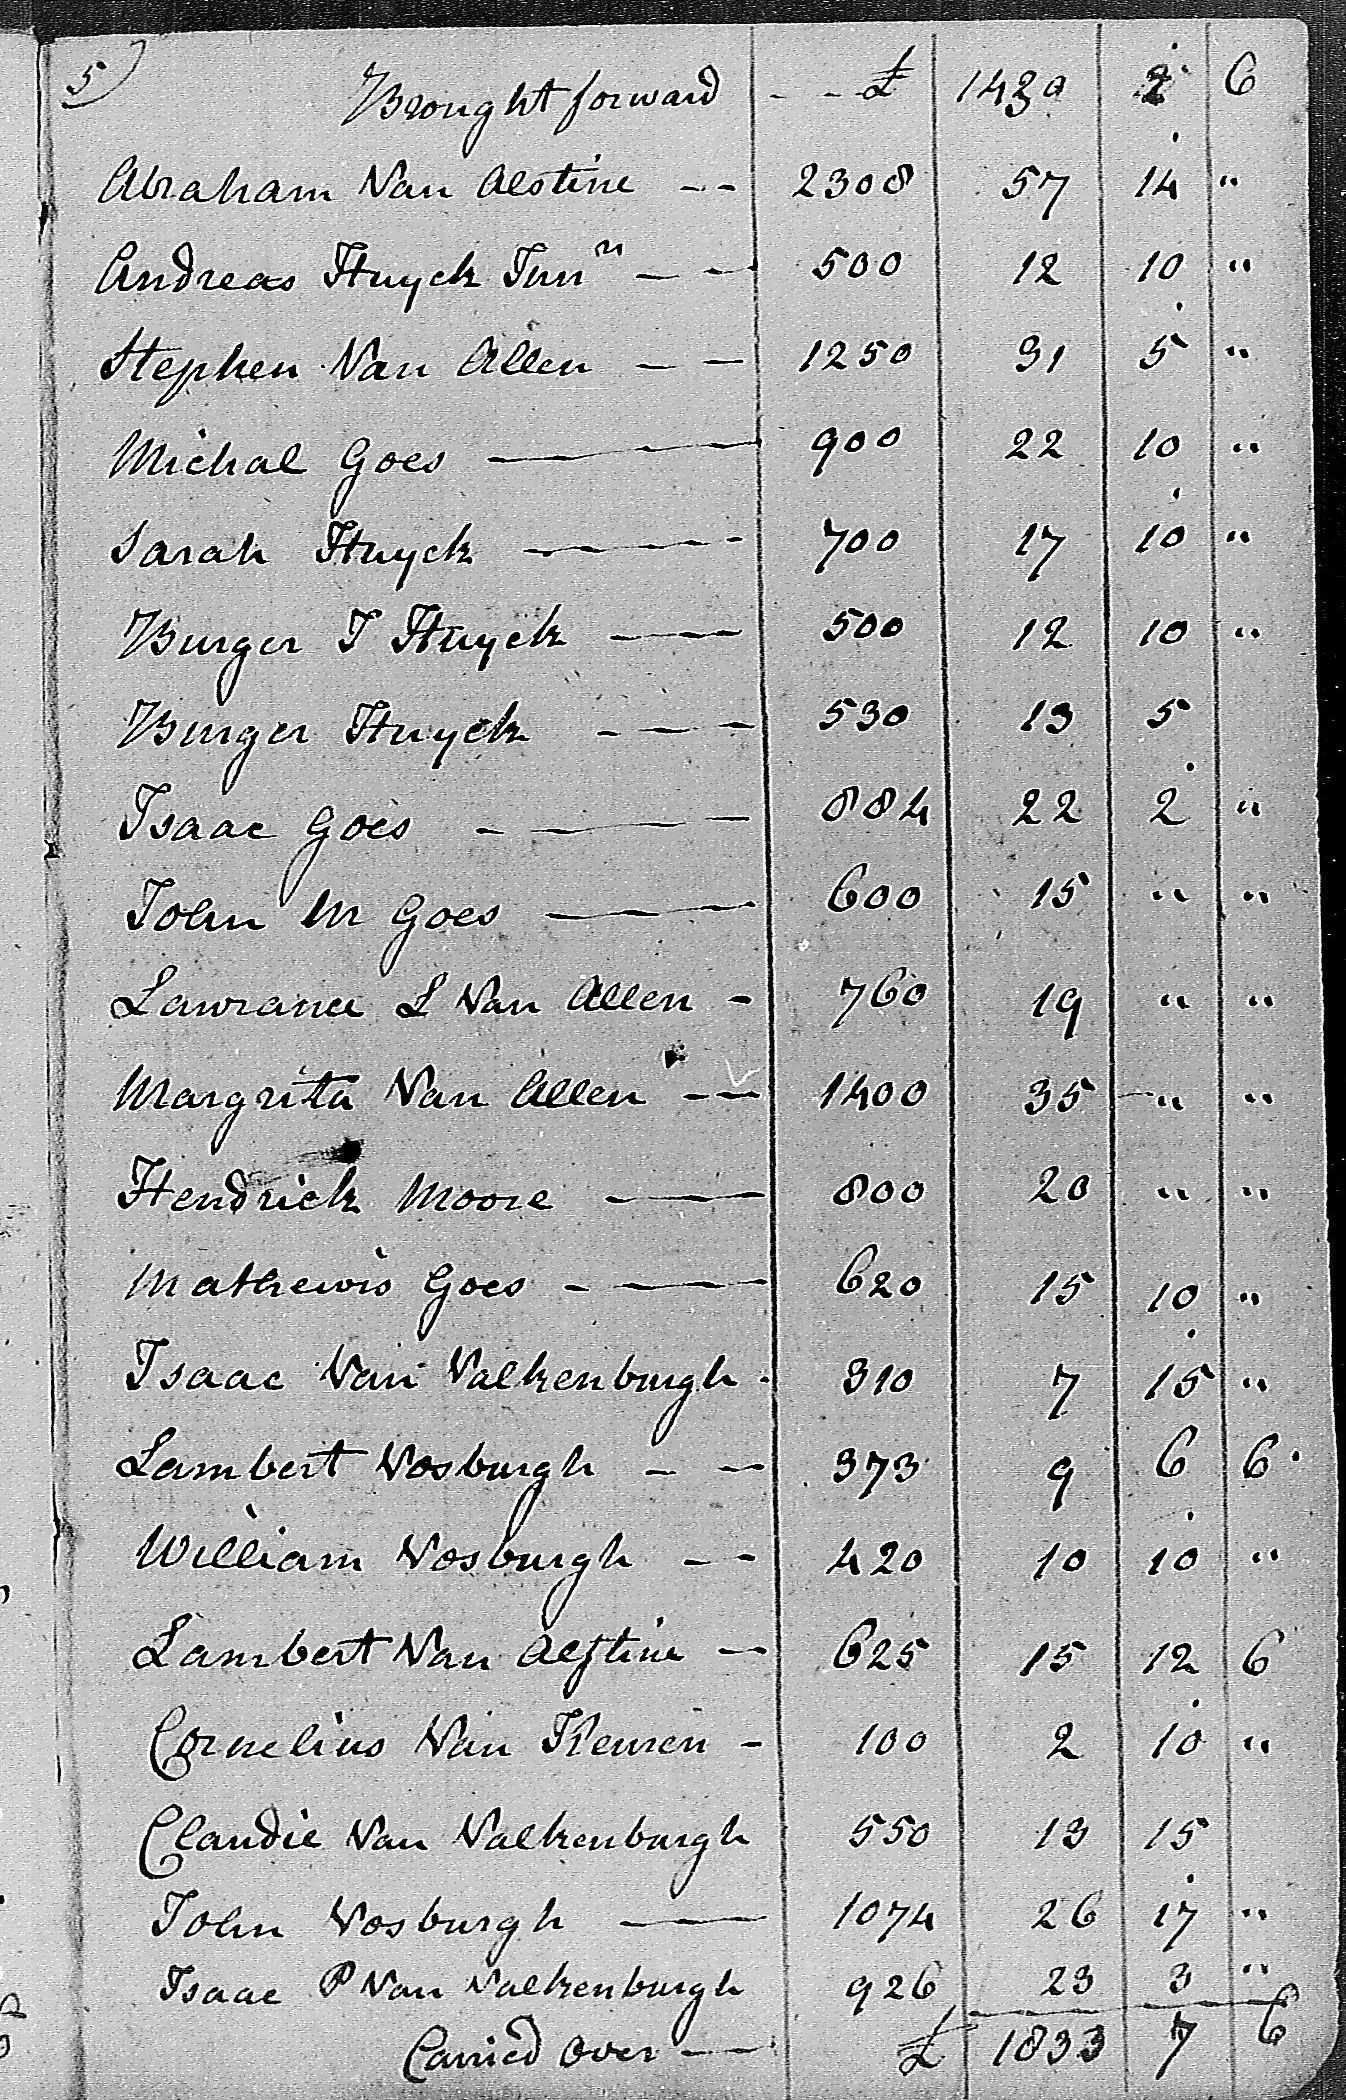 5)
Brought forward - - - £ 1430 2 6
Abraham Van Alstine - - 2308 57 14 "
Andreas Huyck Junr — — 500 12 10 "
Stephen Van Allen — — 1250 31 5 "
Michal Goes — 900 22 10 "
Sarah Huyck — 700 17 10 "
Burger J Huyck — 500 12 10 "
Burger Huyck - — — 530 13 5
Isaac Goes - — — — 884 22 2 "
John M Goes — 600 15 " "
Lawrance L Van Allen - 760 19 " "
Margrita Van Allen - — 1400 35 " "
Hendrick Moore — 800 20 " "
Mathewis Goes - — 620 15 10 "
Isaac Van Valkenburgh . 310 7 15 "
Lambert Vosburgh - — 373 9 6 6
William Vosburgh — - 420 10 10 "
Lambert Van Alstine — 625 15 12 6
Cornelius Van Keuren - 100 2 10 "
Claudie Van Valkenburgh 550 13 15
John Vosburgh — 1074 26 17 "
Isaac P Van Valkenburgh 926 23 3 "
Carried Over — £ 1833 7 6